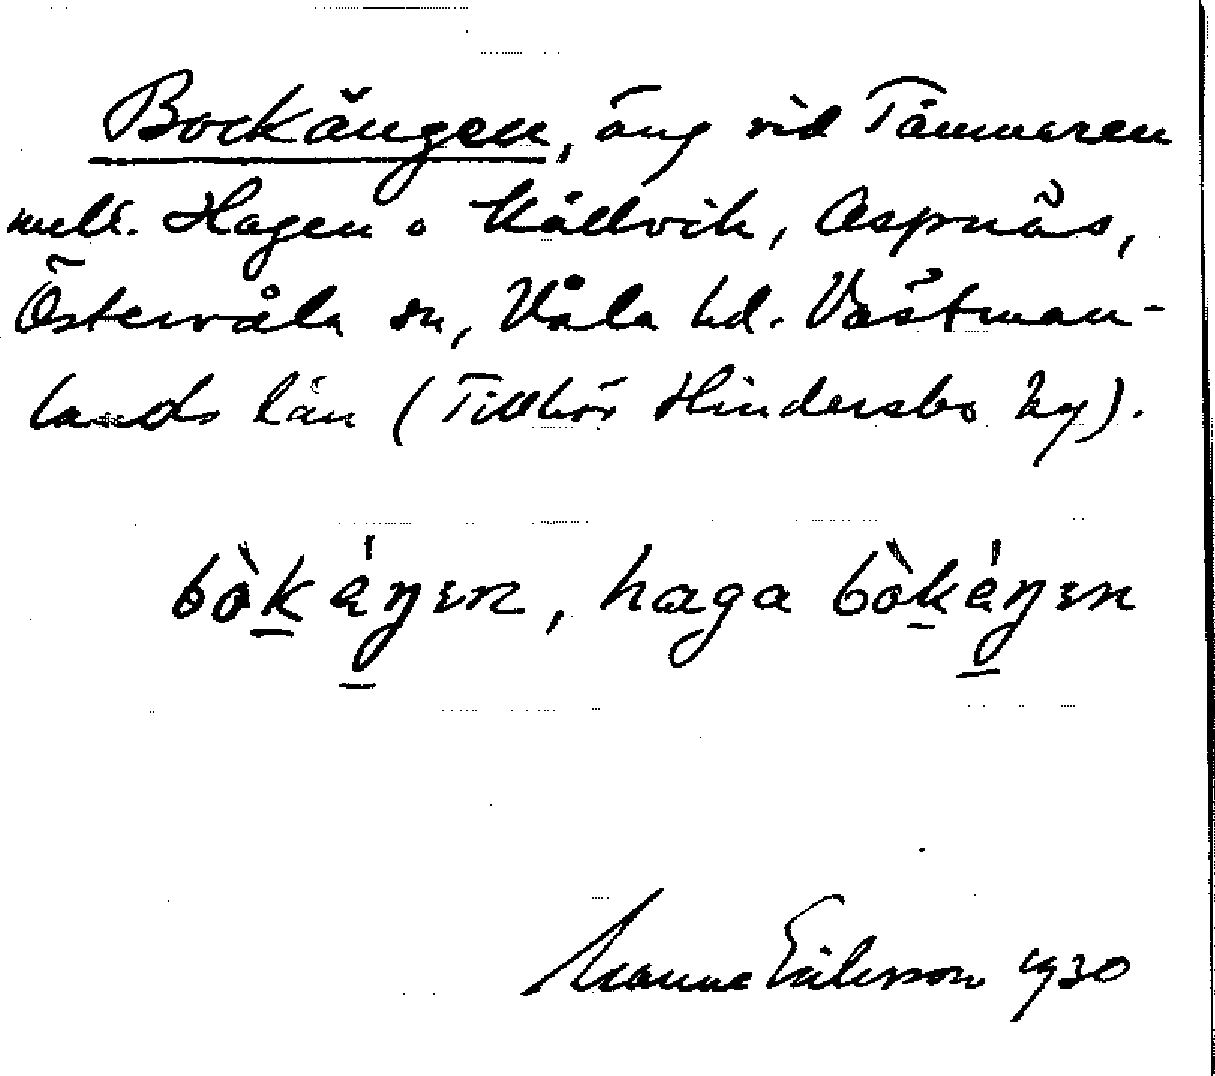 Bockängen, äng vid Tämnaren
mell. Hagen o Kållvik, Aspnäs,
Östervåla sn, Våla hd. Västman-
lands län (Tillhör Hindersbo by).
bòkáŋen, haga bòkáŋen
Manne Eriksson 1930